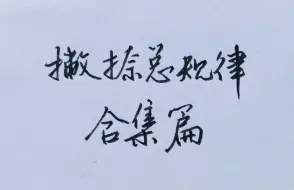 撇捺总规律
合集篇